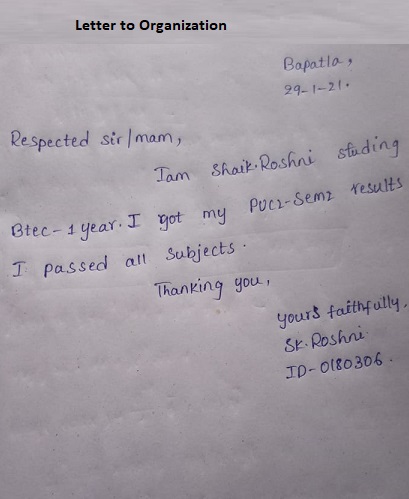 Letter to Organization
Bapatla,
29-1-21.
Respected sir/mam,
Iam Shaik.Roshni studing
Btec-1 year. I got my PUC2-Sem2 results
I passed all Subjects.
Thanking you,
yours faithfully.
SK.Roshni
ID-0180306.